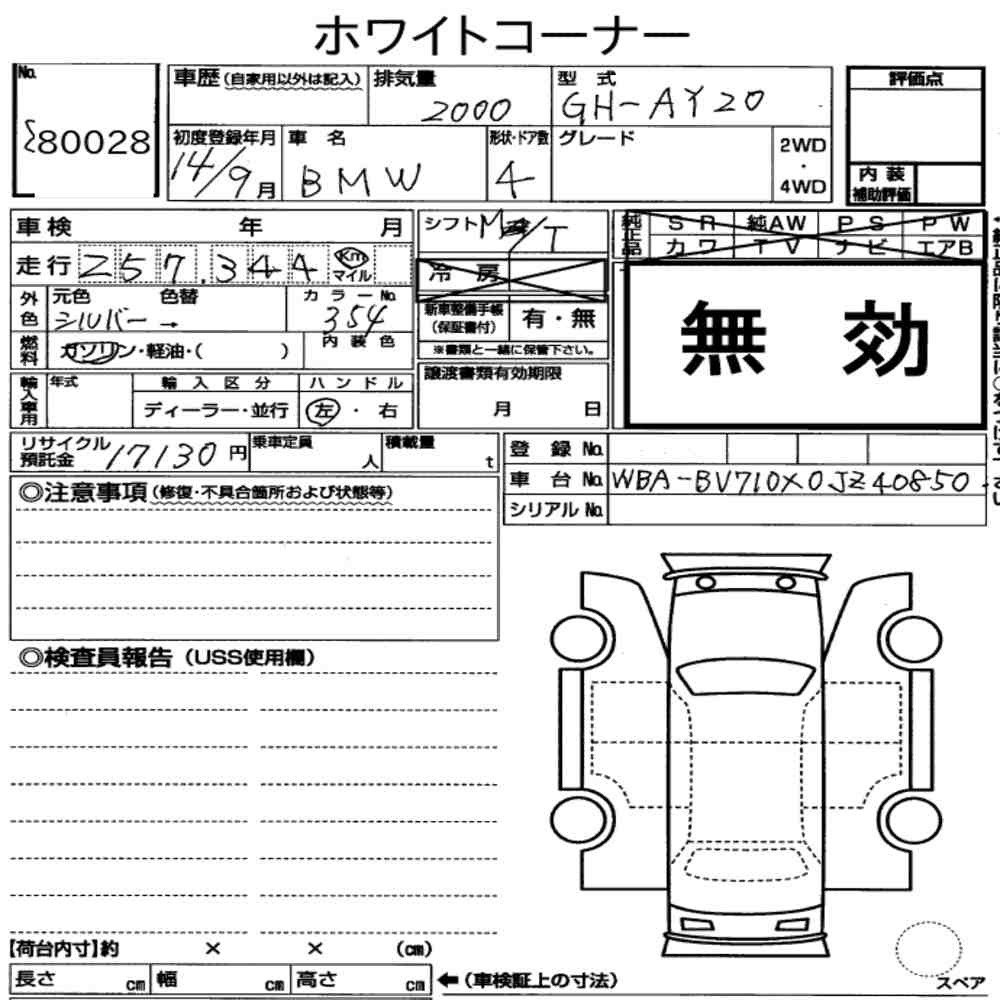 ホワイトコーナー
No. 80028
車歴 (自家用以外は記入)
排気量 2000
型式 GH-AY20
評価点
初度登録年月 14/9月
車名 BMW
形状・ドア数 4
グレード
2WD・4WD
内装補助評価
車検 年 月
シフト M/T
純正品 SR 純AW PS PW
カワ TV ナビ エアB
走行 257.344 Km マイル
冷房
無効
外色 元色 シルバー→ 色替
カラーNo. 354
新車整備手帳(保証書付) 有・無
※書類と一緒に保管下さい。
燃料 ガソリン・軽油・( )
内装色
輸入車用 年式
輸入区分 ディーラー・並行
ハンドル 左・右
譲渡書類有効期限
月 日
リサイクル預託金 17130円
乗車定員 人
積載量 t
登録No.
車台No. WBA-BV710X0JZ40850
シリアルNo.
◎注意事項 (修復・不具合箇所および状態等)
◎検査員報告 (USS使用欄)
【荷台内寸】約 × × (cm)
長さ cm 幅 cm 高さ cm ←(車検証上の寸法)
スペア